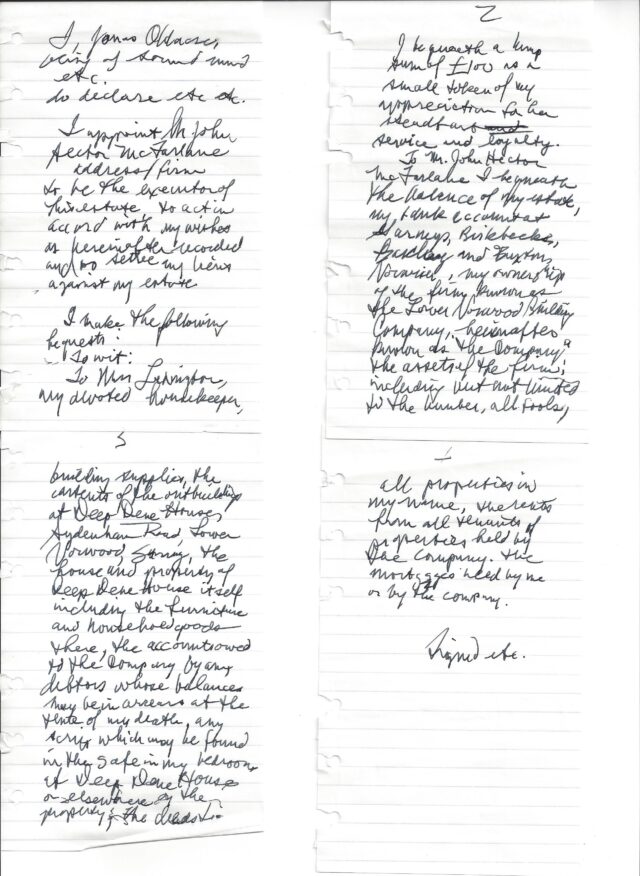 I, Jonas Oldacre,
being of sound mind
etc.
do declare etc etc.
I appoint Mr John
Hector McFarlane
address/firm
to be the executor of
this estate to act in
accord with my wishes
as hereinafter recorded
and to settle my liens
against my estate
I make the following
bequests:
To wit:
To Mrs Lexington,
my devoted housekeeper,
2
I bequeath a lump
sum of £100 as a
small token of my
appreciation for her
steadfast and
service and loyalty.
To Mr. John Hector
McFarlane I bequeath
the balance of my estate,
my bank account at
Birkbecks,
Barclay and Buxton,
Norwich, my ownership
of the firm known as
the Lower Norwood Building
Company, hereinafter
known as "the Company"
the assets of the firm,
including but not limited
to the lumber, all tools,
3
building supplies, the
contents of the outbuildings
at Deep Dene House,
Sydenham Road, Lower
Norwood, Surrey, the
house and property of
Deep Dene House itself
including the furniture
and household goods
there, the accounts owed
to the Company by any
debtors whose balances
may be in arrears at the
time of my death, any
scrip which may be found
in the safe in my bedroom
at Deep Dene House
or elsewhere on the
property, the deeds to
all properties in
my name, the rents
from all tenants of
properties held by
the company, the
mortgages held by me
or by the company.
Signed etc.